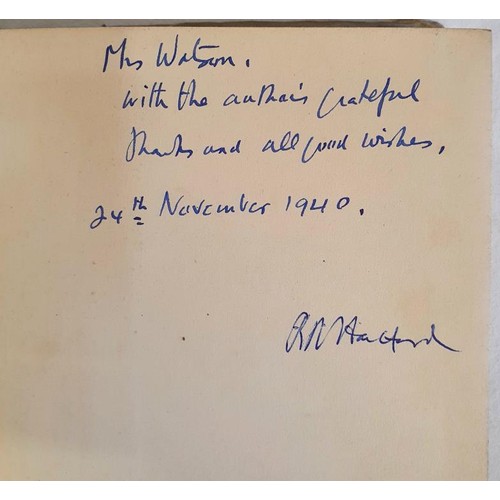 Mrs Watson.
with the author's grateful
thanks and all good wishes.
24th November 1940.